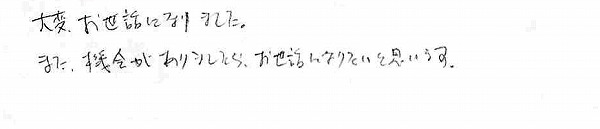 大変、お世話になりました。
また、機会がありましたら、お世話になりたいと思います。